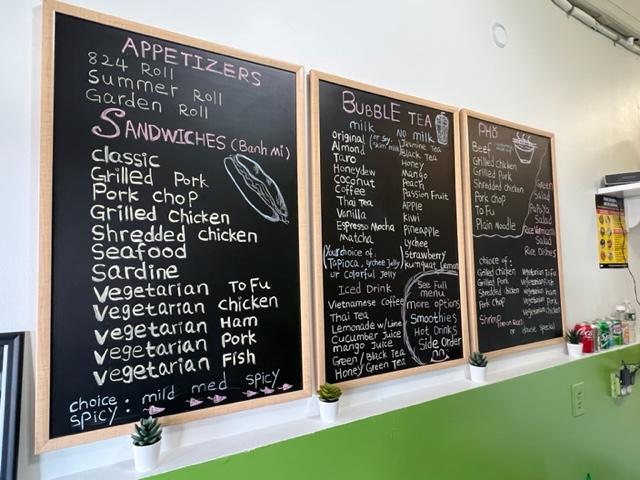 APPETIZERS
824 Roll
Summer Roll
Garden Roll
SANDWICHES (Banh mi)
classic
Grilled Pork
Pork chop
Grilled Chicken
Shredded chicken
Seafood
Sardine
Vegetarian To Fu
vegetarian chicken
vegetarian Ham
vegetarian Pork
vegetarian Fish
choice: mild med spicy
spicy:
BUBBLE TEA
milk
(or Soy, Skim milk)
original
Almond
Taro
Honeydew
Coconut
Coffee
Thai Tea
Vanilla
Espresso Mocha
Matcha
NO milk
Jasmine Tea
Black Tea
Honey
Mango
Peach
Passion Fruit
APPLE
Kiwi
Pineapple
Lychee
strawberry
Kumquat Lemon
(Your choice of:
Tapioca, lychee Jelly)
or colorful Jelly
Iced Drink
Vietnamese Coffee
Thai Tea
Lemonade w/Lime
Cucumber Juice
mango Juice
Green/Black Tea
Honey Green Tea
See Full
menu
more options
Smoothies
Hot Drinks
Side Order
PHỞ
Beef
Grilled chicken
Grilled Pork
Shredded chicken
Pork chop
To Fu
Plain Noodle
Green
Salad
Papaya
Salad
Rice Vermicelli
Salad
Rice Dishes
choice of:
Grilled chicken
Grilled Pork
Shredded chicken
Pork chop
Shrimp
Vegetarian To Fu
vegetarian chicken
vegetarian ham
vegetarian Pork
vegetarian Fish
or choose Special